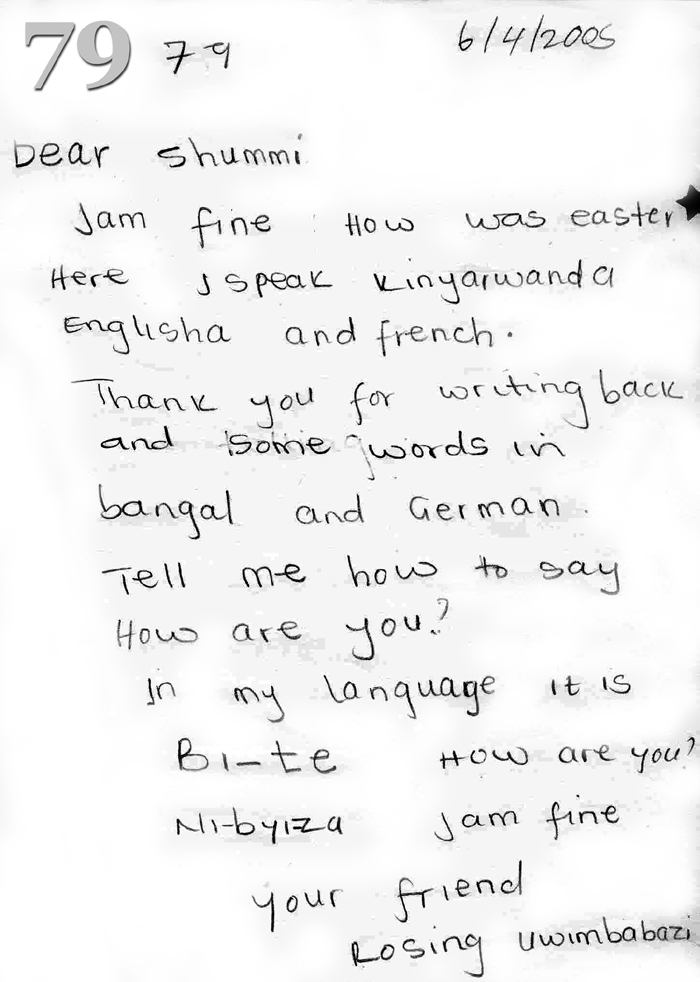 79 79 6/4/2005
Dear Shummi
Jam fine How was easter
Here J speak Kinyarwanda
Englisha and french.
Thank you for writing back
and some words in
bangal and German.
Tell me how to say
How are you?
In my language it is
Bi-te How are you?
Ni-byiza Jam fine
your friend
Rosing Uwimbabazi